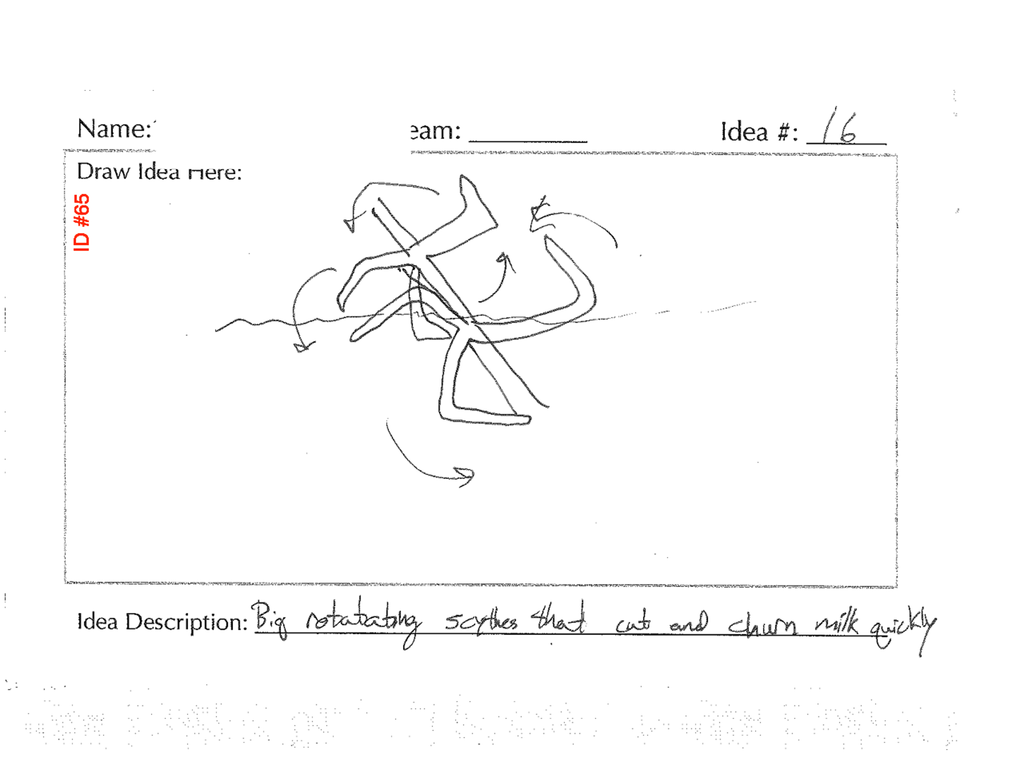 Name: eam: Idea #: 16
Draw Idea Here:
ID #65
Idea Description: Big rotatating scythes that cut and churn milk quickly